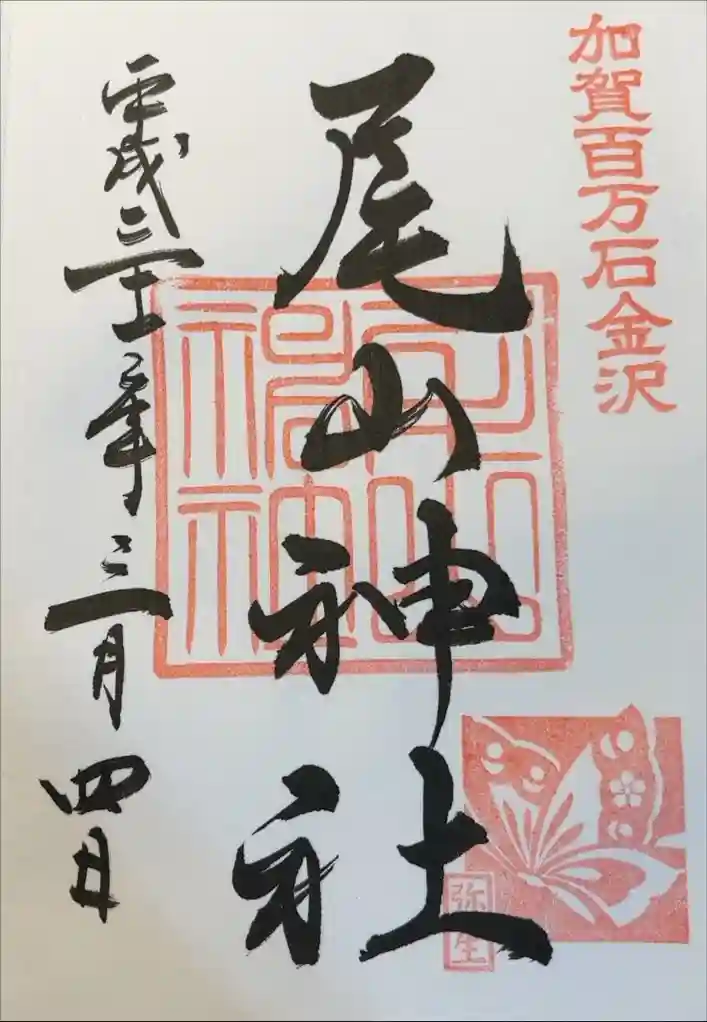 加賀百万石金沢
尾山神社
弥生
平成三十一年三月四日